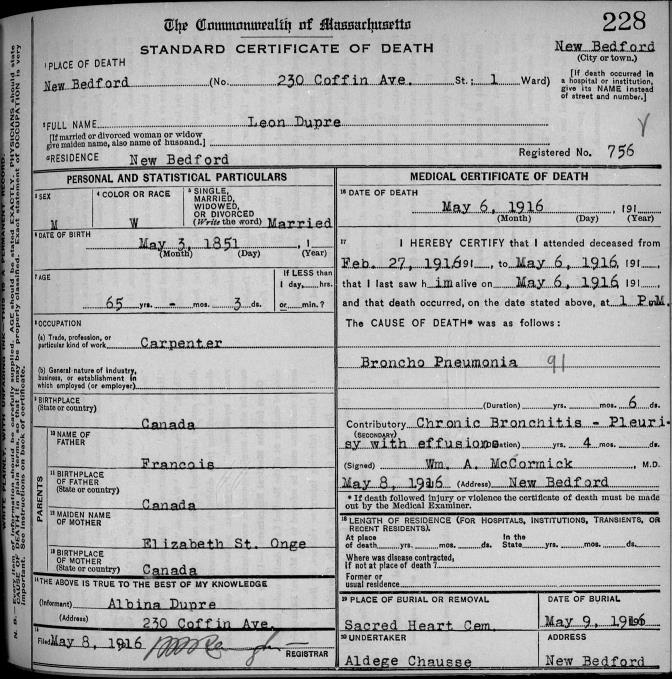 The Commonwealth of Massachusetts
228
STANDARD CERTIFICATE OF DEATH
New Bedford
(City or town.)
1 PLACE OF DEATH
New Bedford (No. 230 Coffin Ave. St.; 1 Ward)
[If death occurred in a hospital or institution, give its NAME instead of street and number.]
2 FULL NAME Leon Dupre
[If married or divorced woman or widow give maiden name, also name of husband.]
Registered No. 756
RESIDENCE New Bedford
PERSONAL AND STATISTICAL PARTICULARS
3 SEX
M
4 COLOR OR RACE
W
5 SINGLE, MARRIED, WIDOWED, OR DIVORCED
(Write the word) Married
6 DATE OF BIRTH
May 3, 1851, 1
(Month) (Day) (Year)
7 AGE
65 yrs. - mos. 3 ds.
If LESS than
1 day, hrs.
or min.?
8 OCCUPATION
(a) Trade, profession, or
particular kind of work Carpenter
(b) General nature of industry,
business, or establishment in
which employed (or employer)
9 BIRTHPLACE
(State or country)
Canada
PARENTS
10 NAME OF
FATHER
Francois
11 BIRTHPLACE
OF FATHER
(State or country)
Canada
12 MAIDEN NAME
OF MOTHER
Elizabeth St. Onge
13 BIRTHPLACE
OF MOTHER
(State or country)
Canada
14 THE ABOVE IS TRUE TO THE BEST OF MY KNOWLEDGE
(Informant) Albina Dupre
(Address) 230 Coffin Ave.
15
Filed May 8, 1916
REGISTRAR
MEDICAL CERTIFICATE OF DEATH
16 DATE OF DEATH
May 6, 1916, 191
(Month) (Day) (Year)
17 I HEREBY CERTIFY that I attended deceased from
Feb. 27, 1916 191, to May 6, 1916, 191
that I last saw him alive on May 6, 1916, 191
and that death occurred, on the date stated above, at 1 P.M.
The CAUSE OF DEATH* was as follows:
Broncho Pneumonia 91
(Duration) yrs. mos. 6 ds.
Contributory Chronic Bronchitis - Pleuri-
(SECONDARY)
sy with effusions (Duration) yrs. 4 mos. ds.
(Signed) Wm. A. McCormick, M.D.
May 8, 1916 (Address) New Bedford
* If death followed injury or violence the certificate of death must be made out by the Medical Examiner.
18 LENGTH OF RESIDENCE (FOR HOSPITALS, INSTITUTIONS, TRANSIENTS, OR RECENT RESIDENTS).
At place of death yrs. mos. ds. In the State yrs. mos. ds.
Where was disease contracted,
if not at place of death?
Former or
usual residence
19 PLACE OF BURIAL OR REMOVAL
Sacred Heart Cem.
DATE OF BURIAL
May 9, 1916
20 UNDERTAKER
Aldege Chausse
ADDRESS
New Bedford